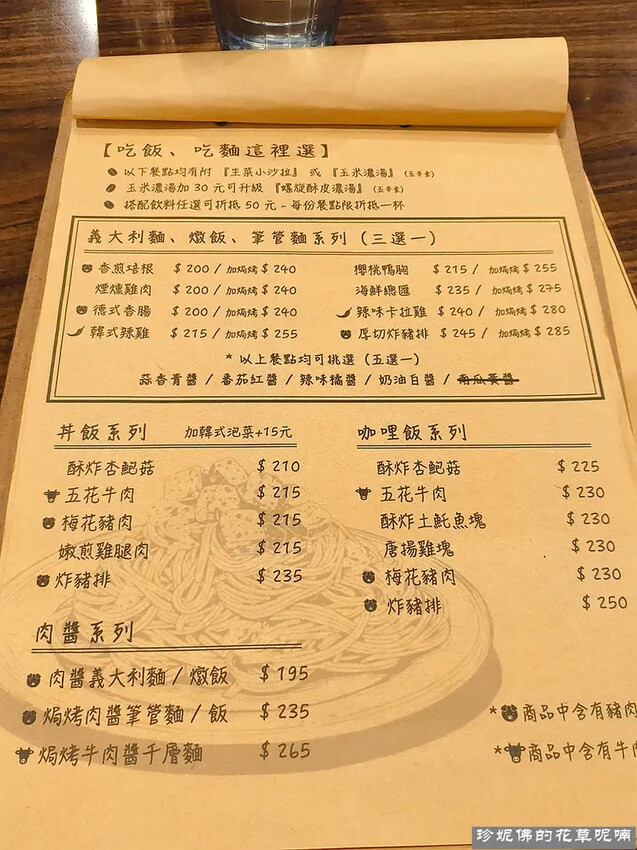 【吃飯、吃麵這裡選】
以下餐點均有附『生菜小沙拉』或『玉米濃湯』(五辛素)
玉米濃湯加 30 元可升級『螺旋酥皮濃湯』(五辛素)
搭配飲料任選可折抵 50 元 - 每份餐點限折抵一杯
義大利麵、燉飯、筆管麵系列 (三選一)
香煎培根 $200 / 加焗烤 $240
煙燻雞肉 $200 / 加焗烤 $240
德式香腸 $200 / 加焗烤 $240
韓式辣雞 $215 / 加焗烤 $255
櫻桃鴨胸 $215 / 加焗烤 $255
海鮮總匯 $235 / 加焗烤 $275
辣味卡拉雞 $240 / 加焗烤 $280
厚切炸豬排 $245 / 加焗烤 $285
* 以上餐點均可挑選 (五選一)
蒜香青醬 / 番茄紅醬 / 辣味橘醬 / 奶油白醬 / 南瓜黃醬
丼飯系列 加韓式泡菜+15元
酥炸杏鮑菇 $210
五花牛肉 $215
梅花豬肉 $215
嫩煎雞腿肉 $215
炸豬排 $235
咖哩飯系列
酥炸杏鮑菇 $225
五花牛肉 $230
酥炸土魠魚塊 $230
唐揚雞塊 $230
梅花豬肉 $230
炸豬排 $250
肉醬系列
肉醬義大利麵 / 燉飯 $195
焗烤肉醬筆管麵 / 飯 $235
焗烤牛肉醬千層麵 $265
*商品中含有豬肉
*商品中含有牛
珍妮佛的花草呢喃